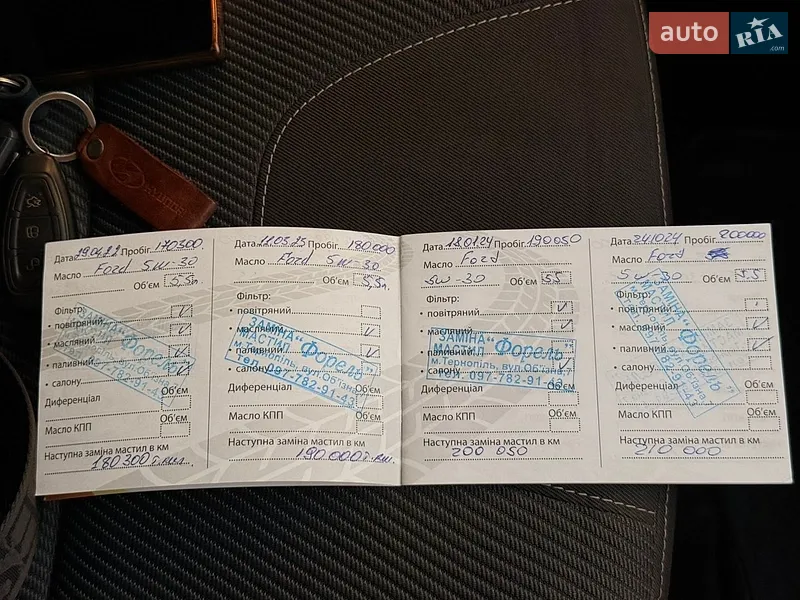 auto RIA.com
HYUNDAI
Дата 19.04.22 Пробіг 170300
Масло Ford 5W-30
Об'єм 5,5л.
Фільтр:
• повітряний
• масляний
• паливний
• салону
Об'єм
Диференціал
Об'єм
Масло КПП
Наступна заміна мастил в км
180 300 т.км.
ЗАМІНА "Форель"
м.Тернопіль, вул.Об'їзна
097-782-91-43
Дата 11.05.25 Пробіг 180000
Масло Ford 5W-30
Об'єм 5,5л.
Фільтр:
• повітряний
• масляний
• паливний
• салону
Об'єм
Диференціал
Об'єм
Масло КПП
Наступна заміна мастил в км
190.000 т.км.
ЗАМІНА
МАСТИЛ "Форель"
м.Тернопіль, вул.Об'їзна
тел. 097-782-91-43
Дата 18.01.24 Пробіг 190050
Масло Ford
5W-30
Об'єм 5.5
Фільтр:
• повітряний
• масляний
• паливний
• салону
Об'єм
Диференціал
Об'єм
Масло КПП
Наступна заміна мастил в км
200 050
ЗАМІНА
МАСТИЛ "Форель"
м.Тернопіль, вул.Об'їзна
тел. 097-782-91-43
Дата 24.10.24 Пробіг 200000
Масло Ford
5W-30
Об'єм 5.5
Фільтр:
• повітряний
• масляний
• паливний
• салону
Об'єм
Диференціал
Об'єм
Масло КПП
Наступна заміна мастил в км
210 000
ЗАМІНА
"Форель"